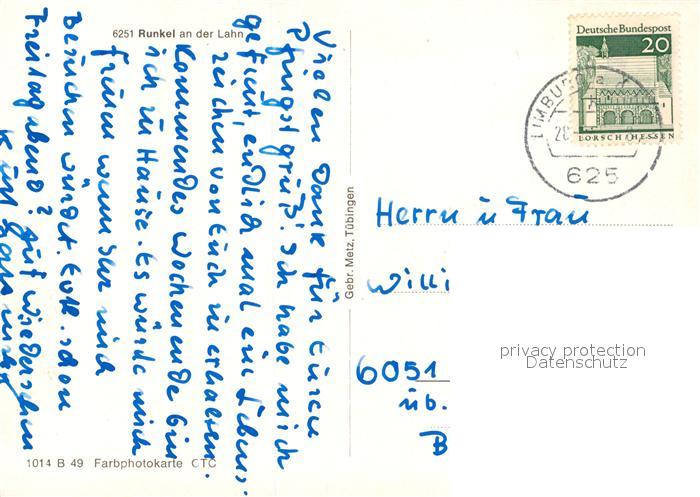 6251 Runkel an der Lahn
Vielen Dank für Euren
Pfingstgruß! Ich habe mich
gefreut, endlich mal ein Lebens-
zeichen von Euch zu erhalten.
Kommendes Wochenende bin
ich zu Hause. Es würde mich
freuen wenn Ihr mich
besuchen würdet. Evtl. schon
Freitagabend? Auf Wiedersehen
1014 B 49 Farbphotokarte CTC
Gebr. Metz, Tübingen
Deutsche Bundespost
20
LORSCH/HESSEN
LIMBURG
28
625
Herrn u Frau
Willi
6051
üb.
B
privacy protection
Datenschutz